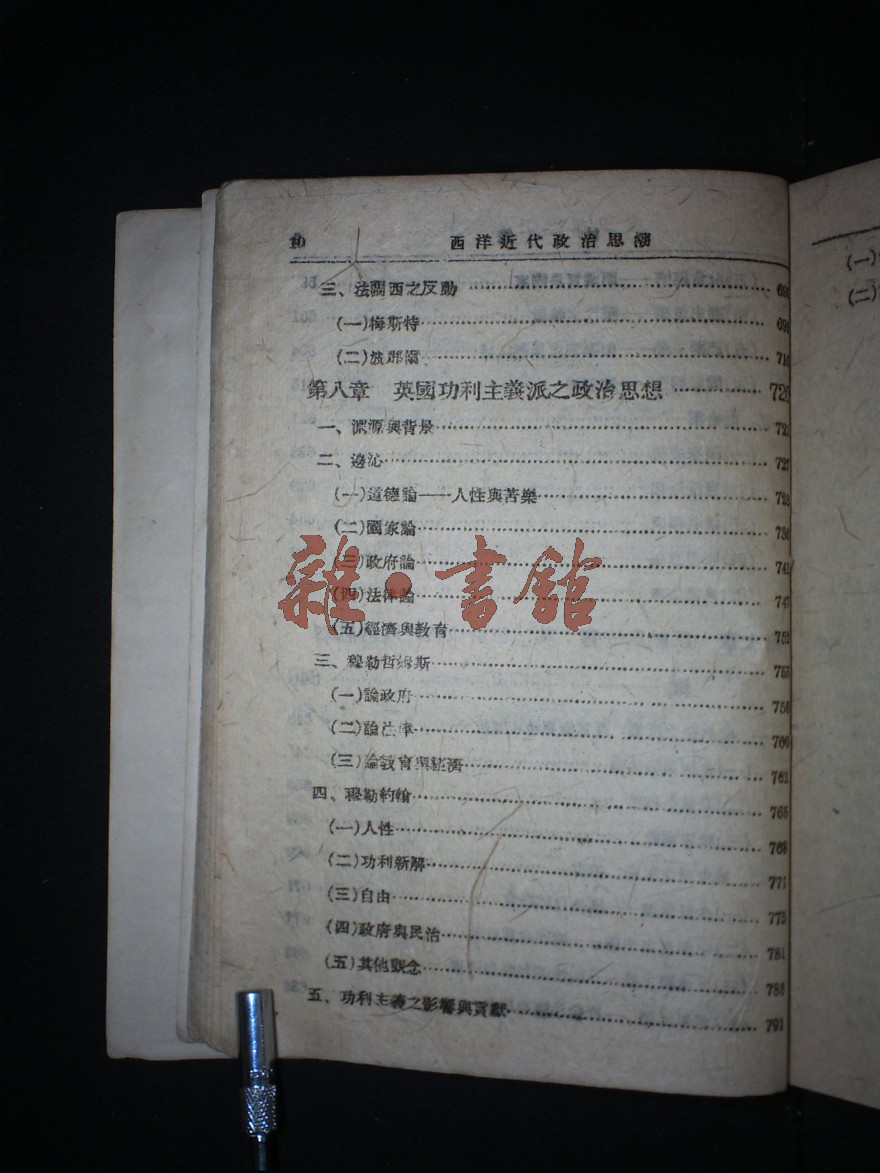 10 西洋近代政治思潮
三、法蘭西之反動
(一)梅斯特
(二)波那爾 710
第八章 英國功利主義派之政治思想 720
一、淵源與背景 721
二、邊沁 727
(一)道德論——人性與苦樂 728
(二)國家論 736
(三)政府論 741
(四)法律論 747
(五)經濟與教育 752
三、穆勒哲姆斯 755
(一)論政府 758
(二)論法律 760
(三)論教育與經濟 762
四、穆勒約翰 765
(一)人性 768
(二)功利新解 771
(三)自由 775
(四)政府與民治 781
(五)其他觀念 788
五、功利主義之影響與貢獻 791
雜·書館
(一)
(二)